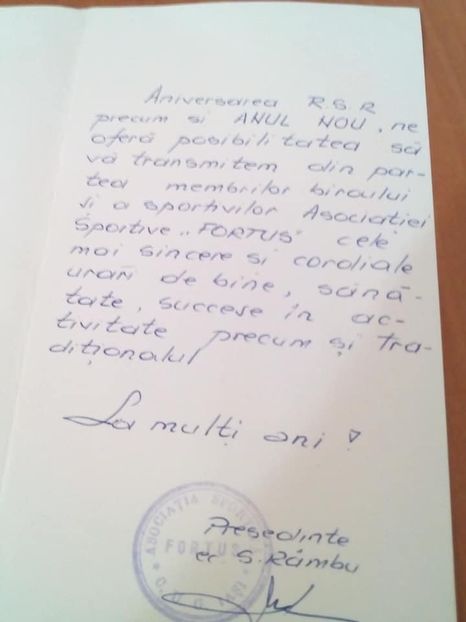 Aniversarea R.S.R
precum si ANUL NOU, ne
oferă posibilitatea să
vă transmitem din par-
tea membrilor biroului
și a sportivilor Asociatiei
Sportive „FORTUS” cele
mai sincere si cordiale
urări de bine, sănă-
tate, succese în ac-
tivitate precum și tra-
diționalul
La mulți ani!
Președinte
ec S. Râmbu
ASOCIAȚIA SPORTIVĂ
FORTUS
C.U.G. IAȘI